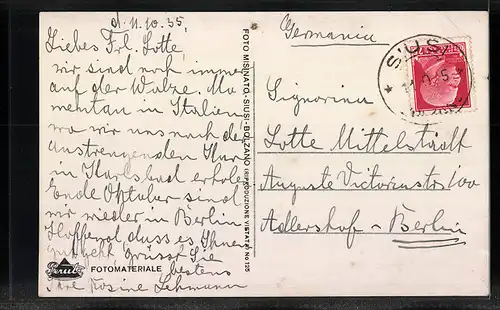 d. 11.10.35,
Liebes Frl. Lotte,
wir sind noch immer
auf der Walze. Mo
mentan in Italien
wo wir uns nach der
anstrengenden Kur
in Karlsbad erholen
Ende Oktober sind
wir wieder in Berlin
Hoffend, dass es Ihnen
gut geht, grüsst Sie
bestens
Ihre Rosine Lehmann
FOTOMATERIALE
FOTO MISINATO-SIUSI-BOLZANO (RIPRODUZIONE VIETATA) No 125
Germania
SIUSI
Signorina
Lotte Mittelstädt
Auguste Victoriastr. 100
Adlershof - Berlin